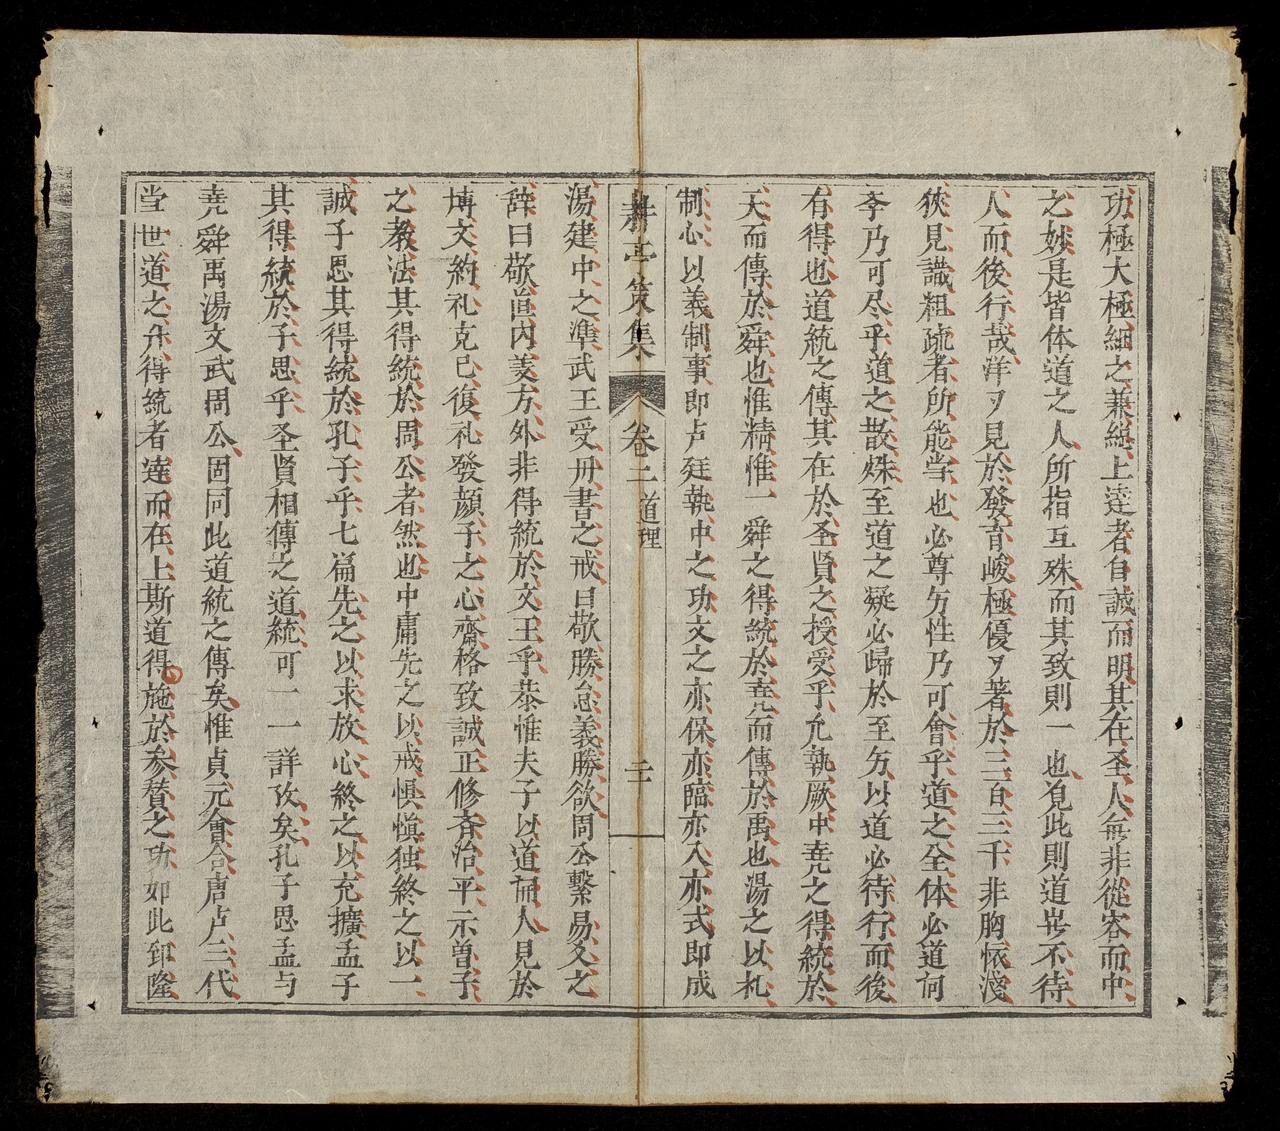 功極大極細之兼總上達者自誠而明其在圣人無非從容而中
之妙是皆体道之人所指互殊而其致則一也觅此則道𡴋不待
人而後行哉洋〻見於發育峻極優〻著於三百三千非胸懷淺
狹見識粗疏者所能当也必尊㐲性乃可會乎道之全体必道问
斈乃可尽乎道之散殊至道之凝必歸於至㐲以道必待行而後
有得也道統之傳其在於圣賢之授受乎允執厥中尭之得統於
天而傳於舜也惟精惟一舜之得統於尭而傳於禹也湯之以礼
制心以義制事即卢廷執中之功文之亦保亦臨亦入亦式即成
壽亭策集 卷二 道理 二
湯建中之準武王受丹書之戒曰敬勝怠義勝欲周公繋易爻之
辞曰敬直内义方外非得統於文王乎恭惟夫子以道𠕂人見於
博文約礼克己復礼發顔子之心齋格致誠正修斉治平示曽子
之教法其得統於周公者然也中庸先之以戒惧慎独終之以一
誠子思其得統於孔子乎七篇先之以求放心終之以充擴孟子
其得統於子思乎圣賢相傳之道統可一一詳攷矣孔子思孟与
尭舜禹湯文武周公固同此道統之傳矣惟貞元會合唐卢三代
当世道之升得統者達而在上斯道得施於参賛之功如此郅隆